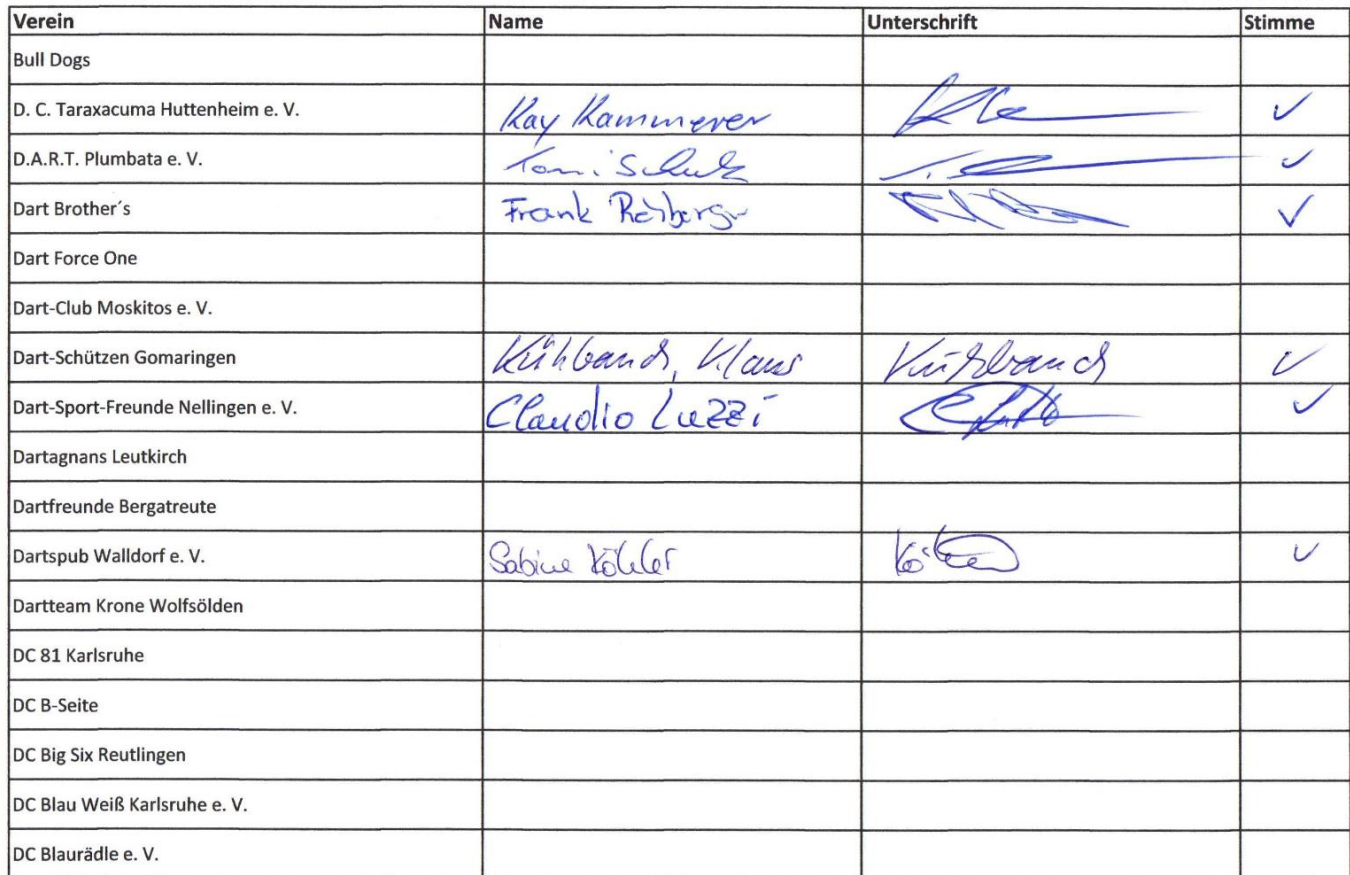 Verein Name Unterschrift Stimme
Bull Dogs
D. C. Taraxacuma Huttenheim e. V. Kay Kammerer ✓
D.A.R.T. Plumbata e. V. Toni ✓
Dart Brother´s Frank ✓
Dart Force One
Dart-Club Moskitos e. V.
Dart-Schützen Gomaringen Kühbauch, Klaus Kühbauch ✓
Dart-Sport-Freunde Nellingen e. V. Claudio Luzzi ✓
Dartagnans Leutkirch
Dartfreunde Bergatreute
Dartspub Walldorf e. V. Sabine Köhler ✓
Dartteam Krone Wolfsölden
DC 81 Karlsruhe
DC B-Seite
DC Big Six Reutlingen
DC Blau Weiß Karlsruhe e. V.
DC Blaurädle e. V.